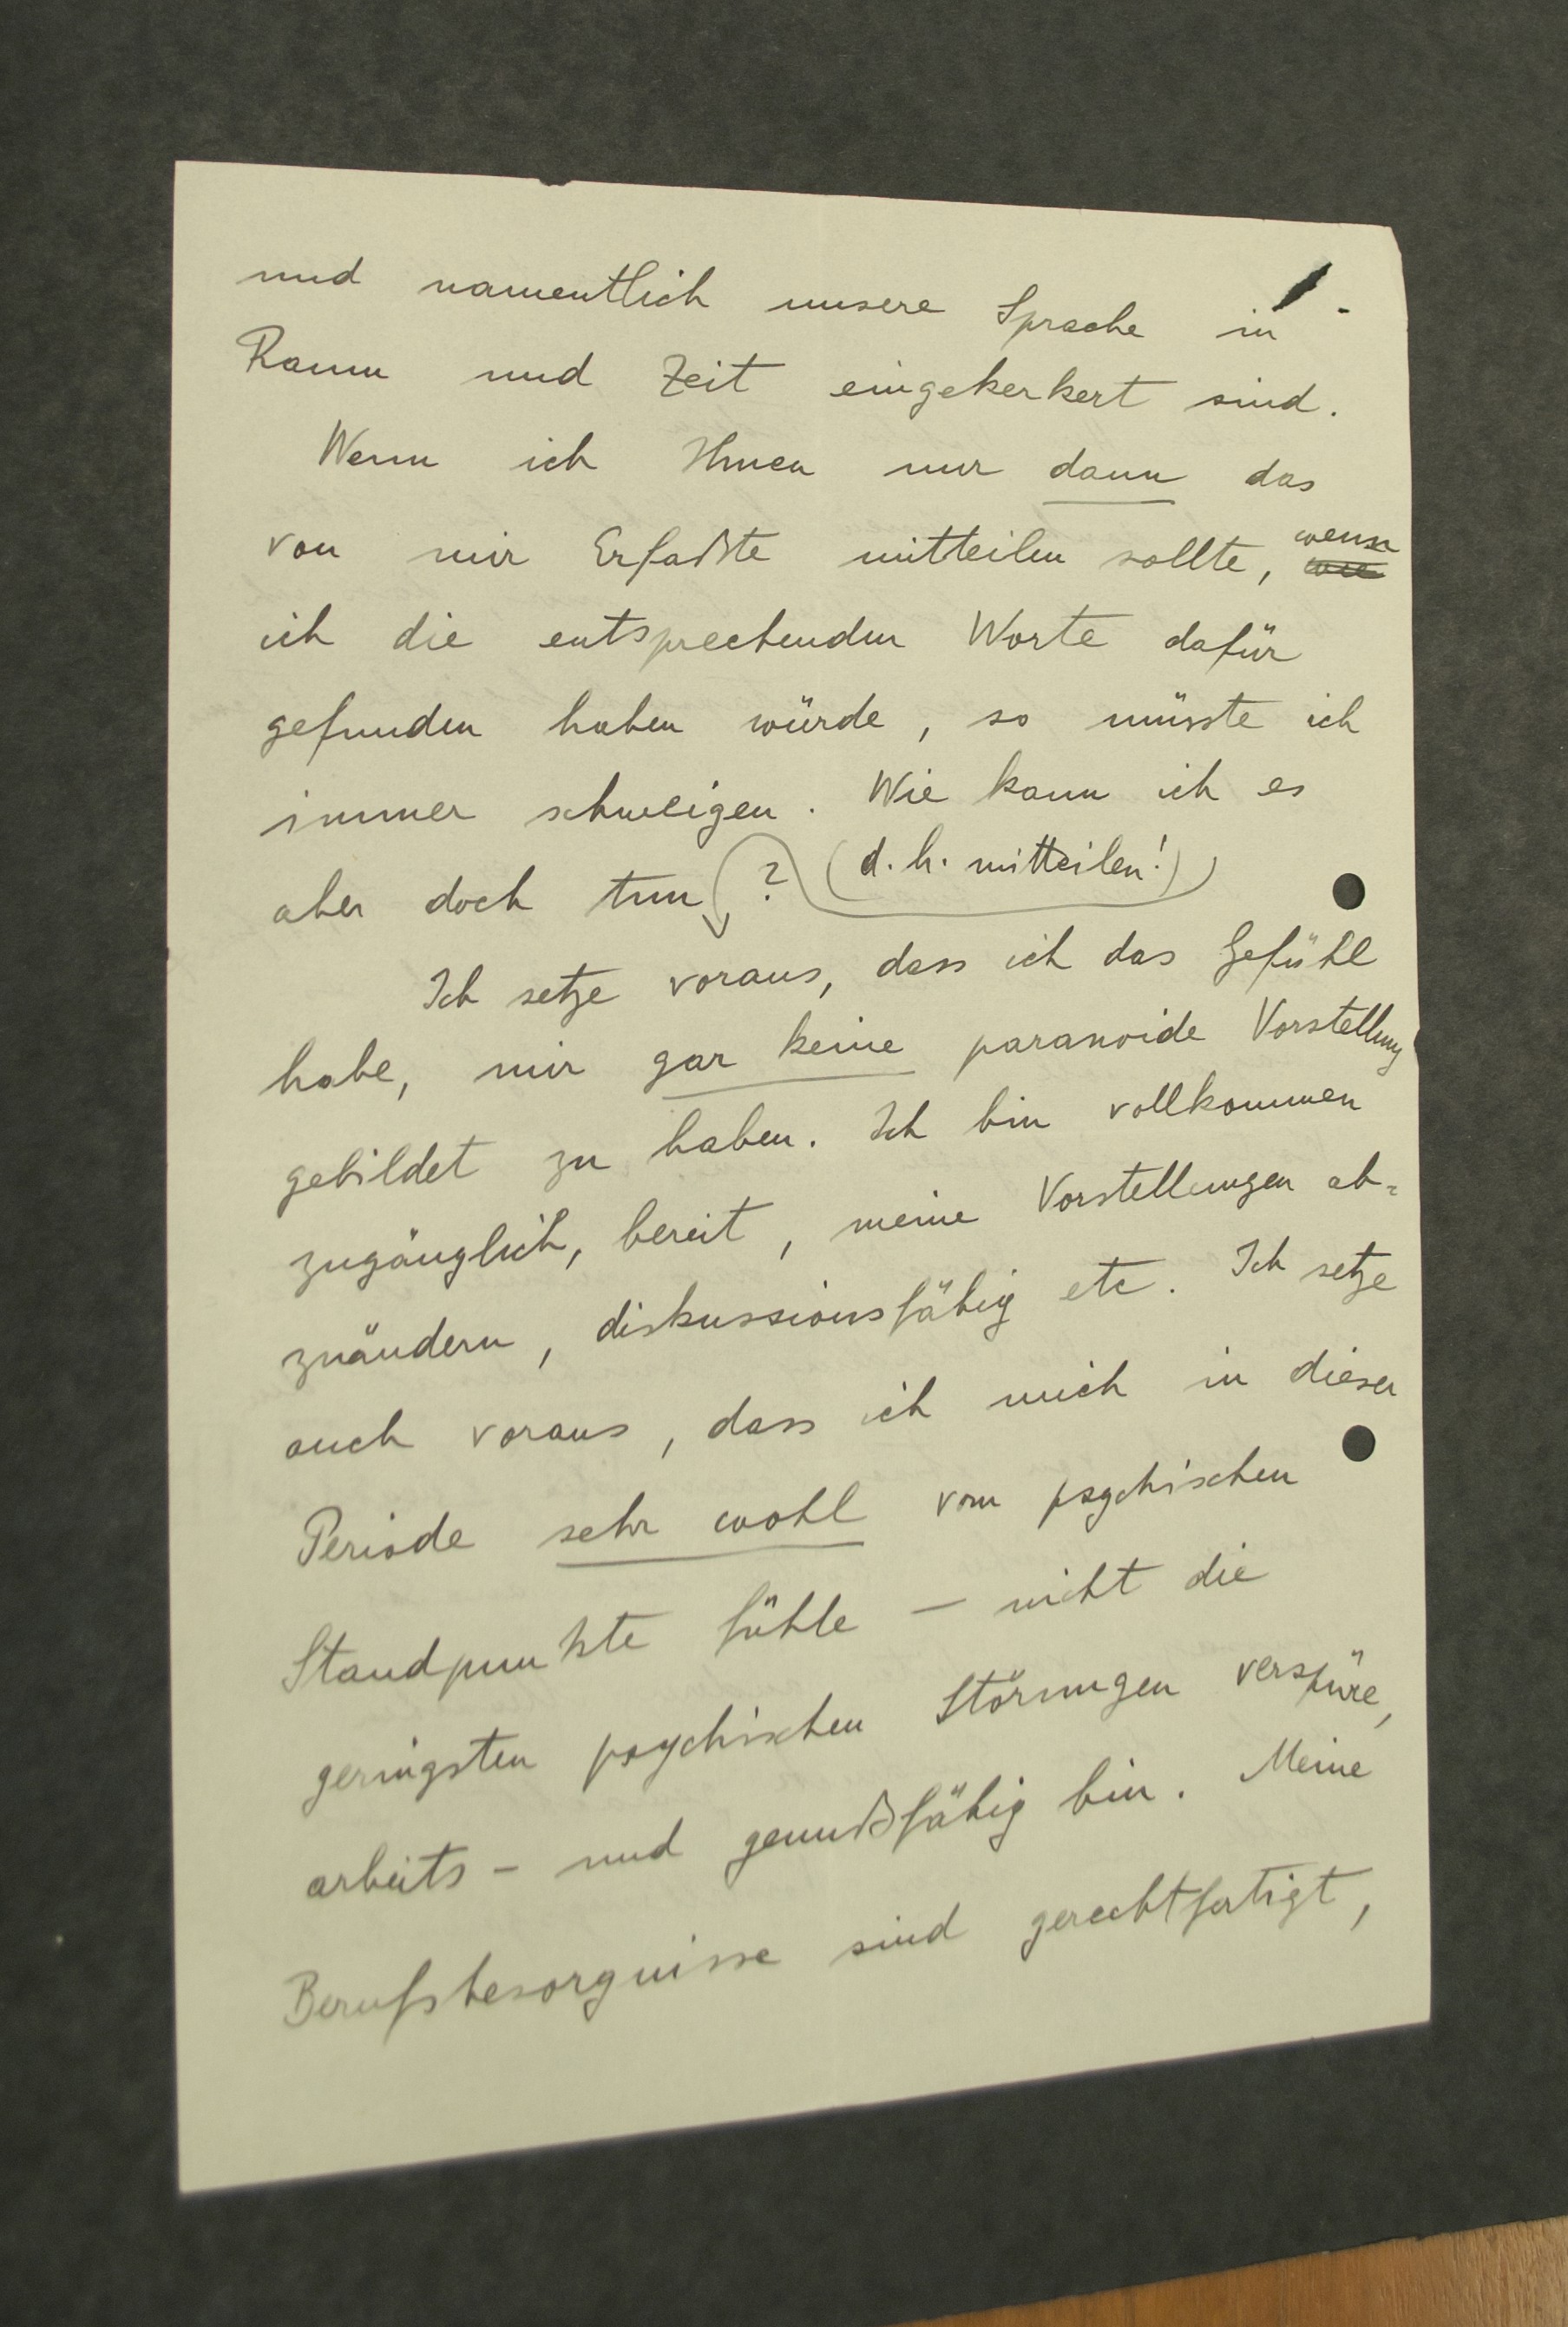 und namentlich unsere Sprache in
Raum und Zeit eingekerkert sind.
Wenn ich Ihnen nur dann das
von mir Erfaßte mitteilen sollte, wenn
ich die entsprechenden Worte dafür
gefunden haben würde, so müsste ich
immer schweigen. Wie kann ich es
aber doch tun ? (d.h. mitteilen!)
Ich setze voraus, dass ich das Gefühl
habe, mir gar keine paranoide Vorstellung
gebildet zu haben. Ich bin vollkommen
zugänglich, bereit, meine Vorstellungen ab-
zuändern, diskussionsfähig etc. Ich setze
auch voraus, dass ich mich in dieser
Periode sehr wohl vom psychischen
Standpunkte fühle – nicht die
geringsten psychischen Störungen verspüre,
arbeits- und genußfähig bin. Meine
Berufsbesorgnisse sind gerechtfertigt,